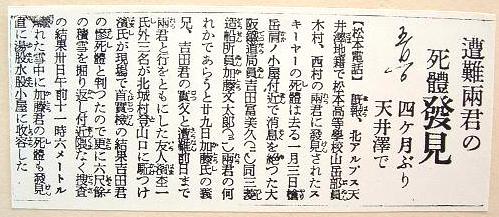 遭難兩君の
死體發見
四ケ月ぶり
天井澤で
【松本電話】既報、北アルプス天
井澤地籍で松本高等學校山岳部員
木村、西村の兩君に發見されたス
キーヤーの死體は去る一月三日槍
岳肩ノ小屋付近で消息を絶つた大
阪鐵道局員吉田富美久 同三菱
造船所員加藤文太郎 兩君の何
れかであらうと廿九日加藤氏の義
兄、吉田君の實父と遭難前日まで
兩君と行をともにした友人濱圭一
氏外三名が北城村登山口に駈つけ
濱氏が現場で首實檢の結果吉田君
の慘死體と判つたので更に六尺餘
の積雪を掘り返し付近隈なく捜査
の結果卅日午前十一時六メートル
離れた雪中に加藤君の死體も發見
直に湯股水股小屋に收容した